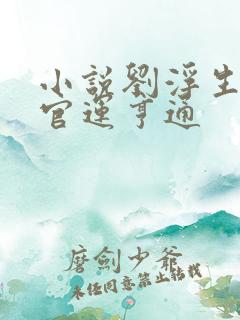 小說劉浮生
官運亨通
磨劍少爺
未經同意禁止轉載